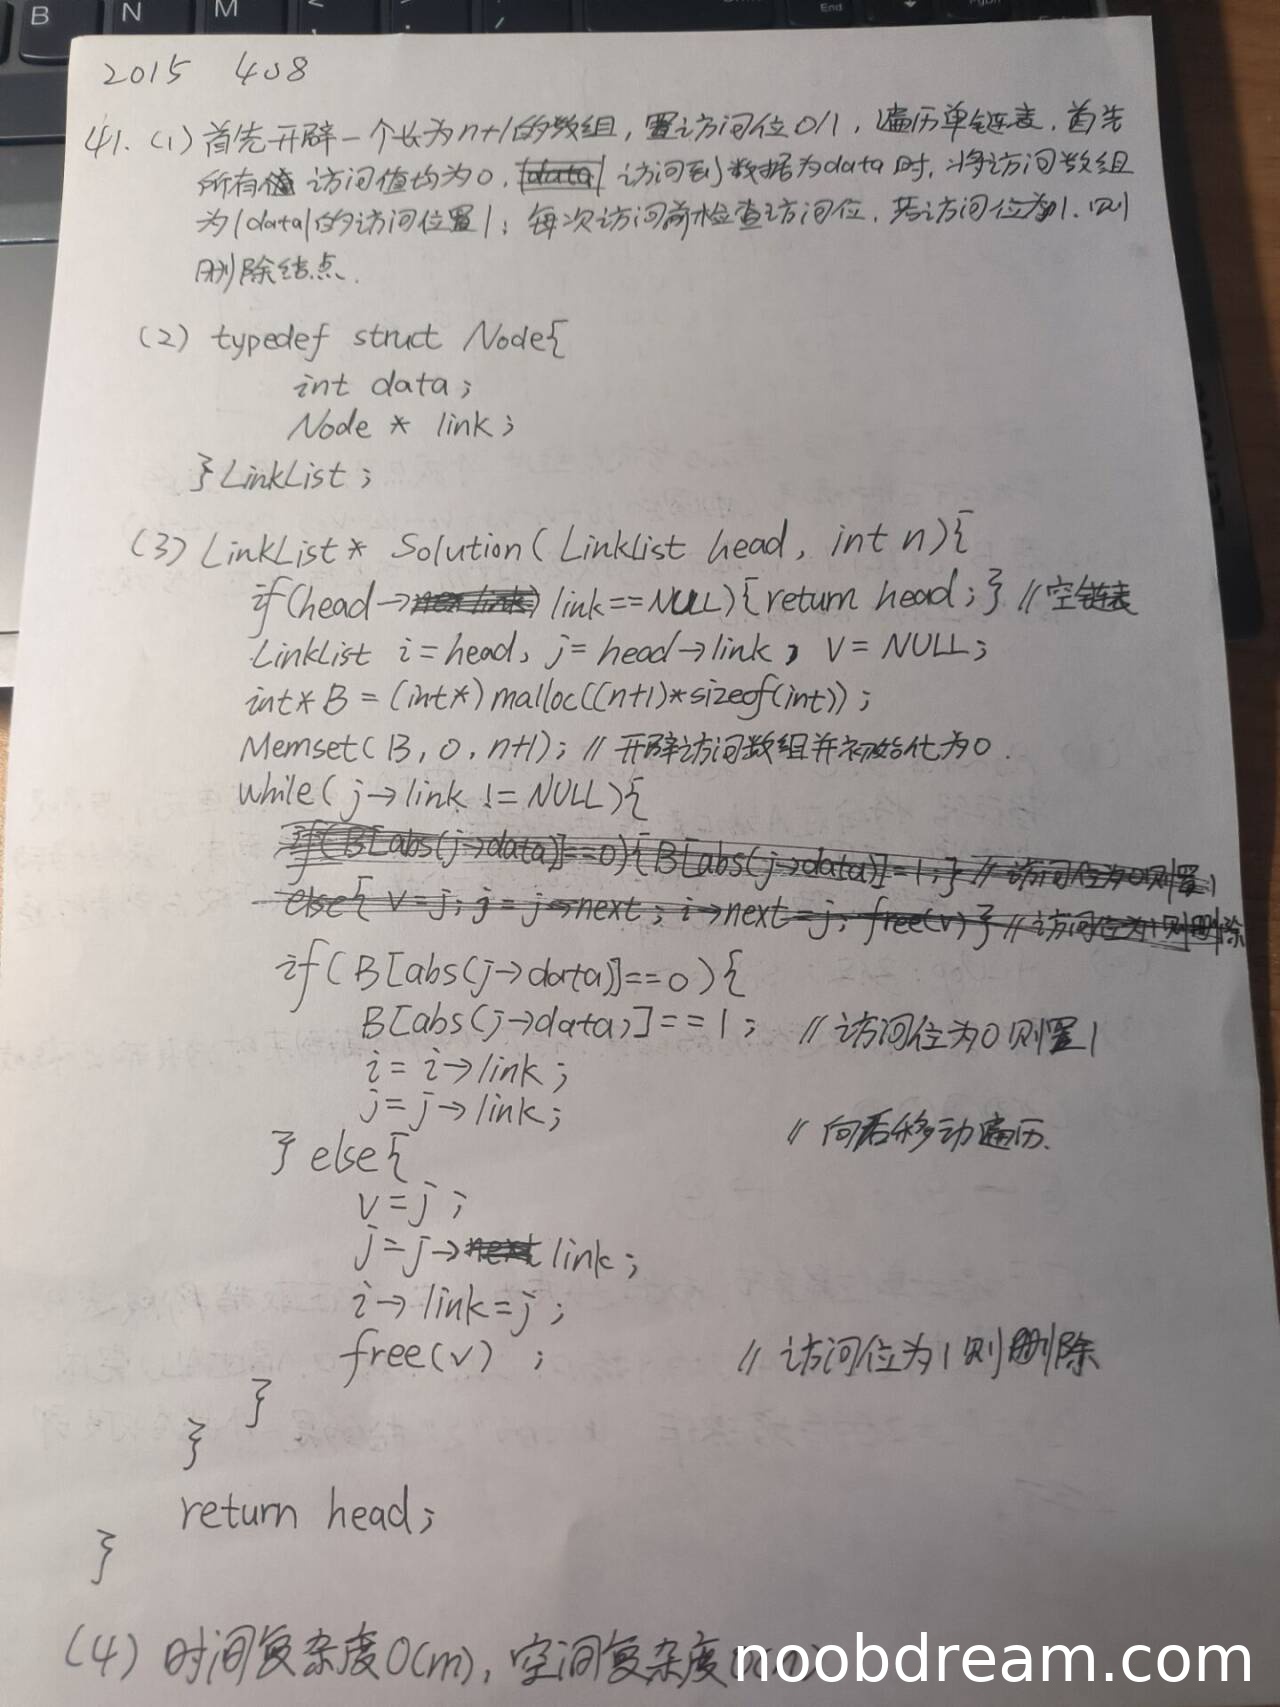 2015 408
41. (1) 首先开辟一个长为n+1的数组, 置访问位0/1, 遍历单链表. 首先
所有值 访问值均为0. 访问到数据为data时. 将访问数组
为|data|的访问位置1; 每次访问前检查访问位. 若访问位为1. 则
删除结点.
(2) typedef struct Node{
int data;
Node * link;
}LinkList;
(3) LinkList* Solution(Linklist head, int n){
if(head→link==NULL){return head;} //空链表
LinkList i=head, j=head→link, v=NULL;
int* B = (int*)malloc((n+1)*sizeof(int));
Memset(B, 0, n+1); // 开辟访问数组并初始化为0.
while(j→link != NULL){
if(B[abs(j→data)]==0){B[abs(j→data)]=1;} // 访问位为0则置1
else{ v=j; j=j→next; i→next=j; free(v)} //访问位为1则删除
if(B[abs(j→data)]==0){
B[abs(j→data)]==1; // 访问位为0则置1
i=i→link;
j=j→link;
// 向后移动遍历.
} else{
v=j;
j=j→link;
i→link=j;
free(v); // 访问位为1则删除
}
}
return head;
}
(4) 时间复杂度O(m), 空间复杂度
noobdream.com